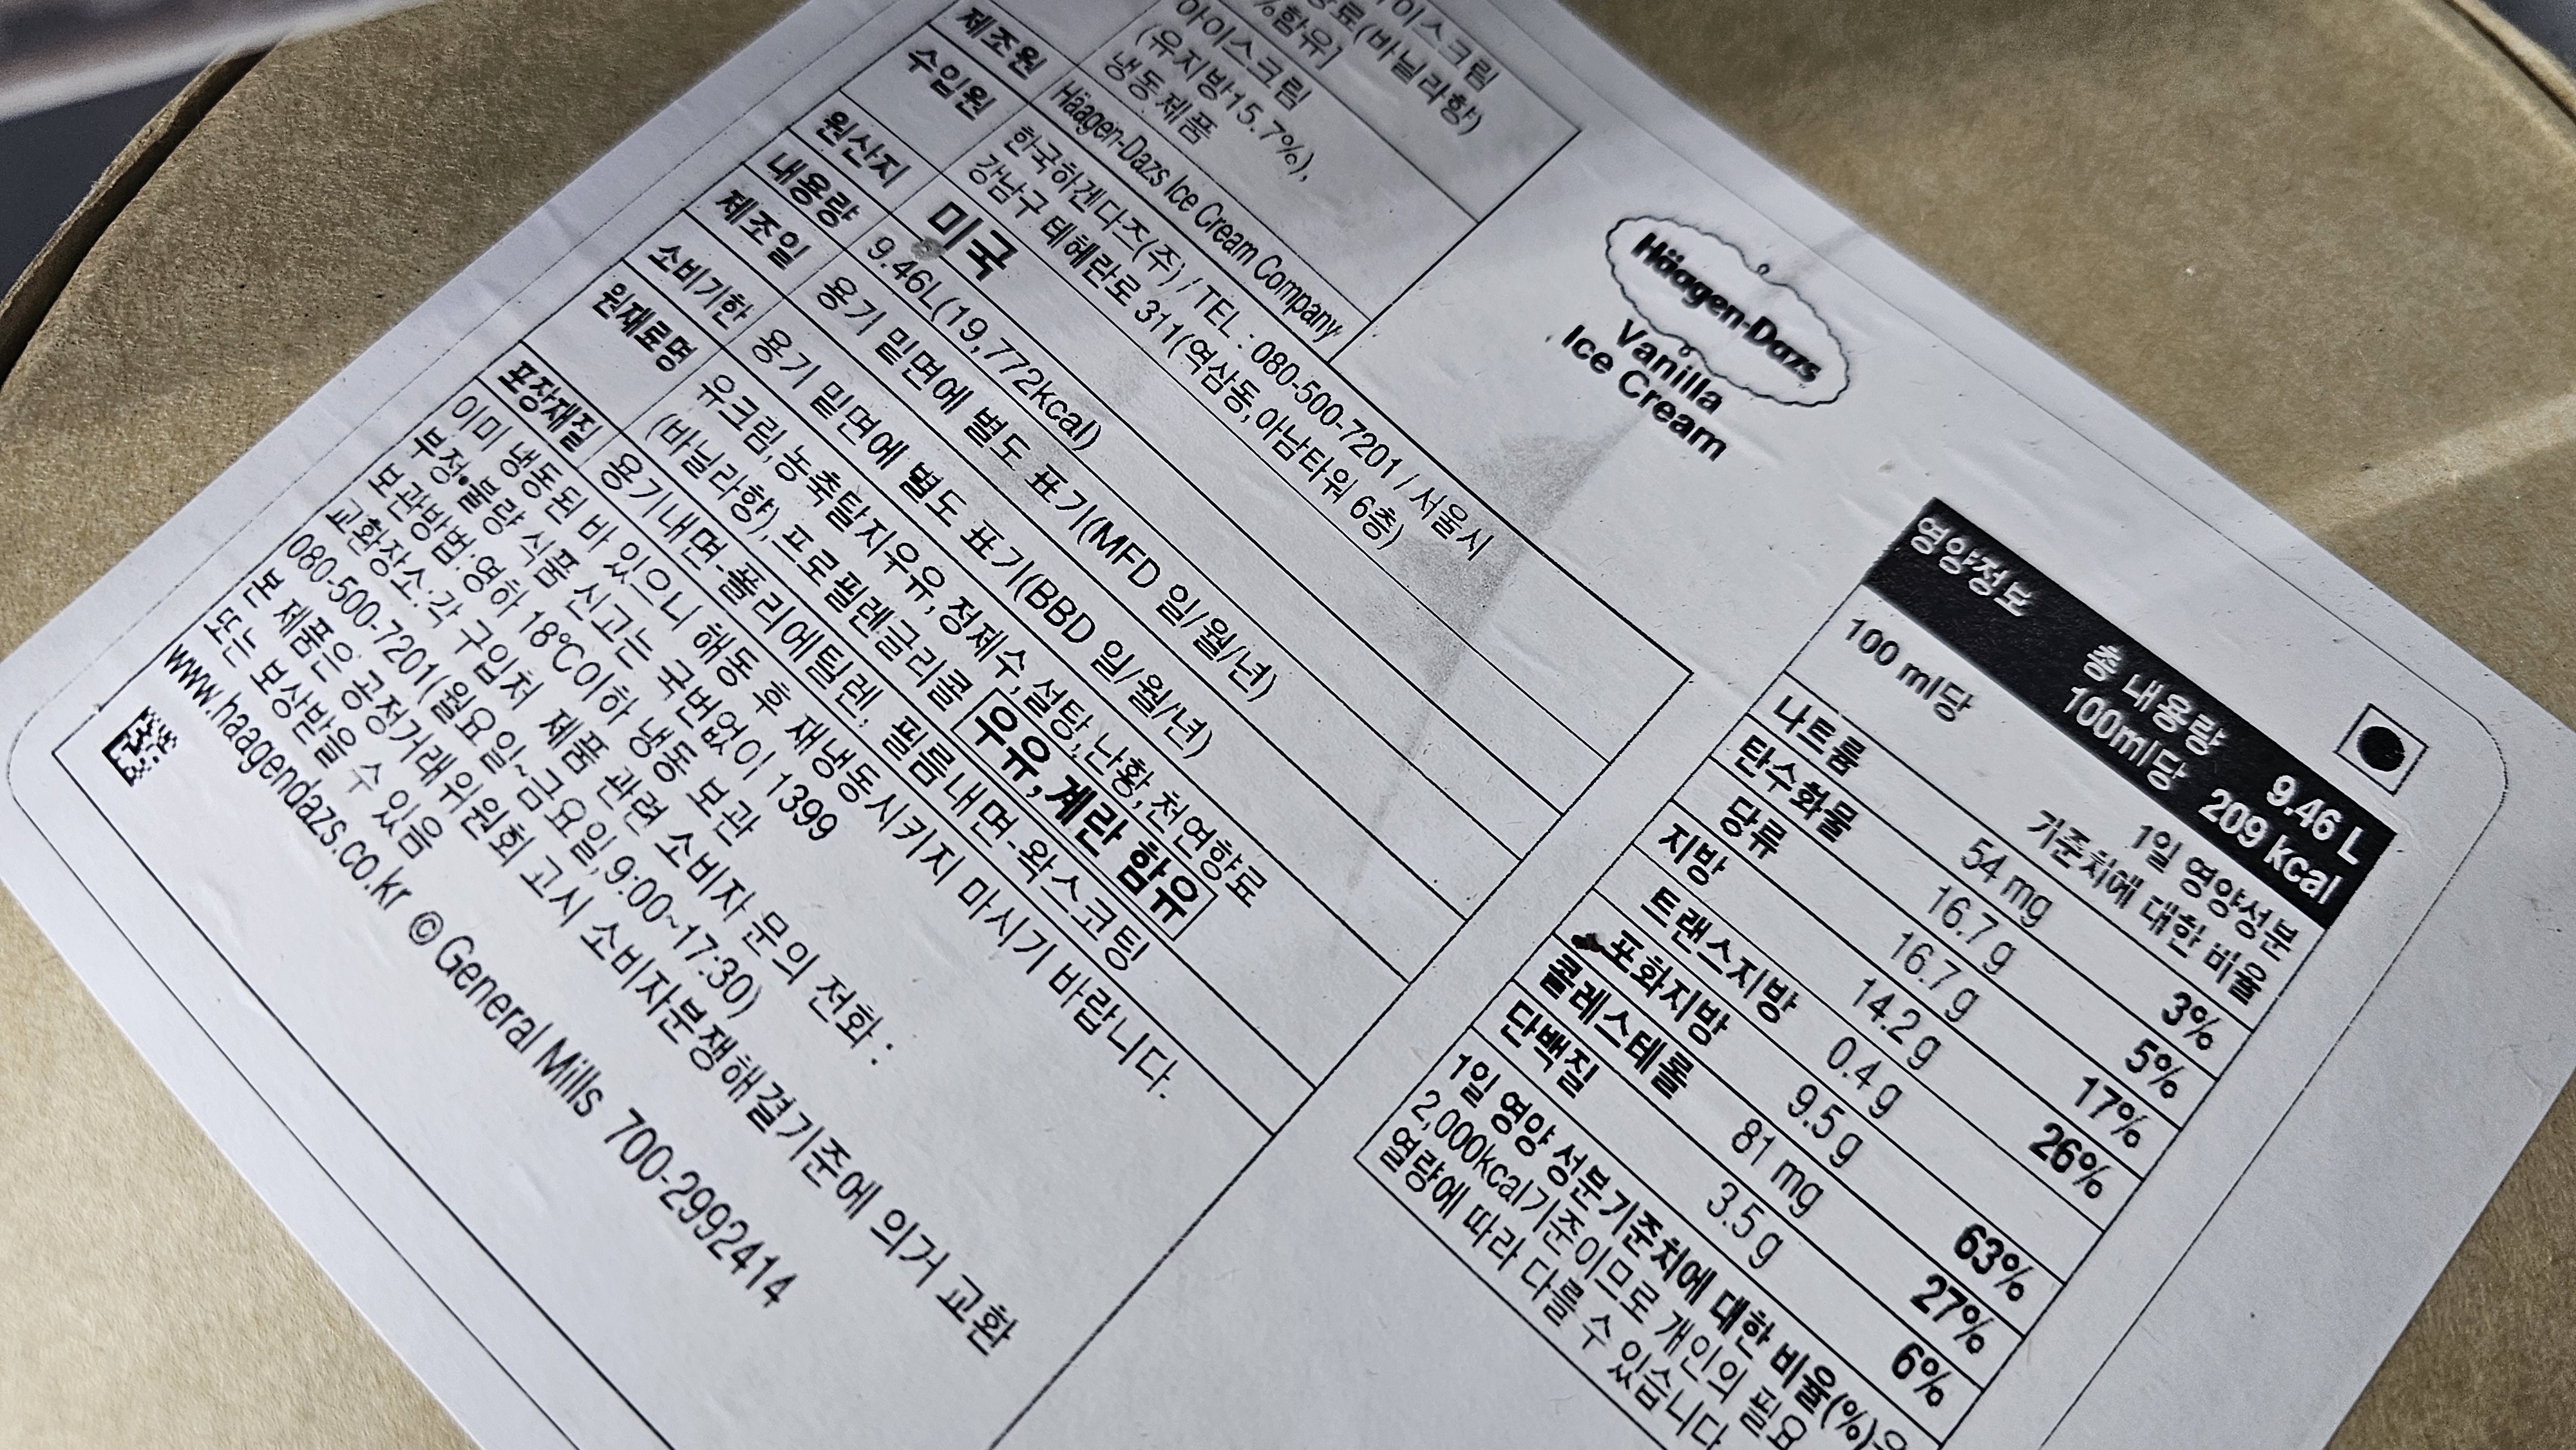 아이스크림
(바닐라향)
%함유]
아이스크림
(유지방15.7%),
냉동 제품
제조원 Häagen-Dazs Ice Cream Company
수입원 한국하겐다즈(주) / TEL : 080-500-7201 / 서울시
강남구 테헤란로 311(역삼동,아남타워 6층)
원산지 미국
내용량 9.46L(19,772kcal)
제조일 용기 밑면에 별도 표기(MFD 일/월/년)
소비기한 용기 밑면에 별도 표기(BBD 일/월/년)
원재료명 유크림,농축탈지우유,정제수,설탕,난황,천연향료
(바닐라향),프로필렌글리콜 우유,계란 함유
포장재질 용기내면-폴리에틸렌, 필름내면-왁스코팅
이미 냉동된 바 있으니 해동 후 재냉동시키지 마시기 바랍니다.
부정•불량 식품 신고는 국번없이 1399
보관방법:영하 18℃이하 냉동 보관
교환장소:각 구입처 제품 관련 소비자 문의 전화 :
080-500-7201(월요일~금요일,9:00~17:30)
본 제품은 공정거래위원회 고시 소비자분쟁해결기준에 의거 교환
또는 보상받을 수 있음
www.haagendazs.co.kr © General Mills 700-2992414
Häagen-Dazs
Vanilla
Ice Cream
영양정보 총 내용량 9.46 L
100ml당 209 kcal
100 ml당 1일 영양성분
기준치에 대한 비율
나트륨 54 mg 3%
탄수화물 16.7 g 5%
당류 16.7 g 17%
지방 14.2 g 26%
트랜스지방 0.4 g
포화지방 9.5 g 63%
콜레스테롤 81 mg 27%
단백질 3.5 g 6%
1일 영양성분기준치에 대한 비율(%)은
2,000kcal기준이므로 개인의 필요
열량에 따라 다를 수 있습니다